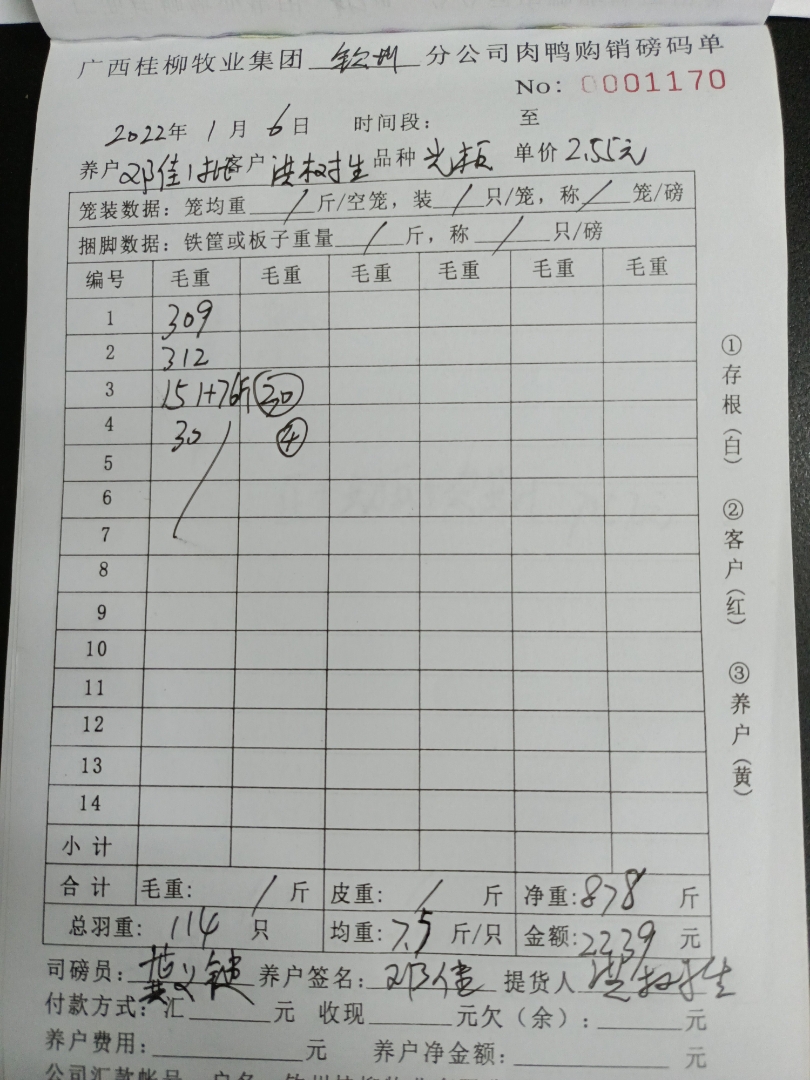 广西桂柳牧业集团 钦州 分公司肉鸭购销磅码单
No: 0001170
2022年 1月 6日 时间段: 至
养户 邓佳 客户 洪权生 品种 光板 单价 2.55元
笼装数据: 笼均重 / 斤/空笼, 装 / 只/笼, 称 / 笼/磅
捆脚数据: 铁筐或板子重量 / 斤, 称 / 只/磅
编号 毛重 毛重 毛重 毛重 毛重 毛重
1 309
2 312
3 151+76 20
4 30 4
5
6
7
8
9
10
11
12
13
14
小计
合计 毛重: / 斤 皮重: / 斤 净重: 878 斤
总羽重: 114 只 均重: 7.5 斤/只 金额: 2239 元
司磅员: 黄义 养户签名: 邓佳 提货人 洪权生
付款方式: 汇 元 收现 元欠(余): 元
养户费用: 元 养户净金额: 元
公司汇款帐号
①存根(白) ②客户(红) ③养户(黄)